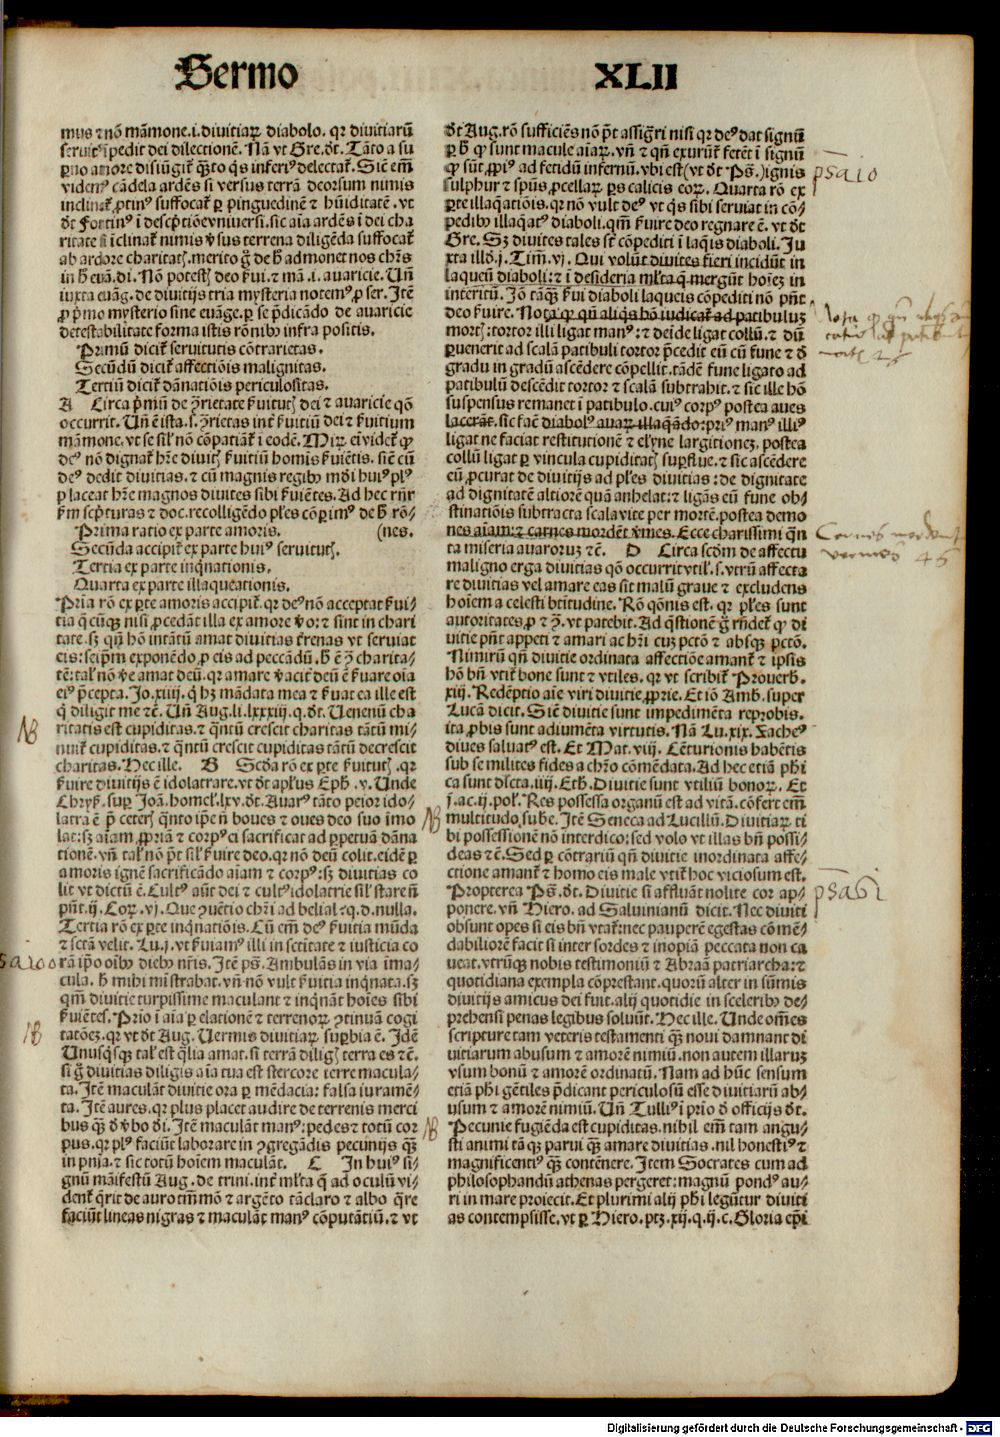 Sermo XLII
mus ⁊ nō māmone .i. diuitiaꝝ diabolo. qꝛ diuitiarū
seruit᷒ īpedit dei dilectionē. Nā vt Gre. dt̄. Tāto a su
ꝑno amore disiūgit᷒ q̄ꝫto q̄s inferi᷒ delectat᷒. Sic̄ em̄
videm᷒ cādela ardēs si versus terrā deorsum nimis
inclinat᷒ ꝓtin᷒ suffocat᷒ ꝑ pinguedinē ⁊ hūiditatē. vt
dt̄ Fortin᷒ ī descp̄tiōe vniuersi. sic aīa ardēs ī dei cha
ritate si īclinat᷒ nimis v̓sus terrena diligēda suffocat᷒
ab ardore charitatꝭ. merito g̊ de h̄ admonet nos chr̄s
in h̄ euā. di. Nō potestꝭ deo ẜui. ⁊ mā .i. auaricie. Un̄
iuxta euāg. de diuitijs tria mysteria notem᷒ ꝓ ser. Itē
ꝓ p̄mo mysterio sine euāge. ꝑ se p̄dicādo de auaricie
detestabilitate forma istis rōnibꝫ infra positis.
Primū dicit᷒ seruitutis cōtrarietas.
Secūdū dicit᷒ affectiōnis malignitas.
Tertiū dicit᷒ dānatiōnis periculositas.
A Circa p̄mū de ꝯrietate ẜuitutꝭ dei ⁊ auaricie qō
occurrit. Un̄ ē ista .s. ꝯrietas int᷒ ẜuitiū dei ⁊ ẜuitium
māmone. vt se sil̓ nō cōpatiāt᷒ ī eodē. Miꝝ ei videt᷒ ꝙ
de᷒ nō dignat᷒ hr̄e diuitꝭ ẜuitiū homīs ẜuiētis. sic̄ cū
de᷒ dedit diuitias. ⁊ cū magnis regibꝫ mūdi hui᷒ pl᷒
ꝑ laceat hr̄e magnos diuites sibi ẜuiētes. Ad hec rn̄r
ẜm scp̄turas ⁊ doc. recolligēdo pl̄es cōꝑim᷒ de h̄ rō⸗
Prima ratio ex parte amoris. (nes.
Secūda accipit᷒ ex parte hui᷒ seruitutꝭ.
Tertia ex parte inq̄nationis.
Quarta ex parte illaqueationis.
Pria rō ex ꝑte amoris accipit᷒. qꝛ de᷒ nō acceptat ẜui⸗
tia q̄cūqꝫ nisi ꝓcedāt illa ex amore v̓o: ⁊ sint in chari
tate. sꝫ qn̄ hō intātū amat diuitias t᷒renas vt seruiat
eis: seip̄m exponēdo ꝓ eis ad peccādū. h̄ ē ꝯ̄ charita⸗
tē: tal᷒ nō v̓e amat deū. qꝛ amare v̓aciꝫ deū ē ẜuare oīa
ei᷒ p̄cepta. Jo. xiiij. q̄ hꝫ mādata mea ⁊ ẜuat ea ille est
q̄ diligit me ⁊c̄. Un̄ Aug. li. lxxxiij. q. dt̄. Uenenū cha
ritatis est cupiditas. ⁊ q̄ntū crescit charitas tātū mi⸗
nuit᷒ cupiditas. ⁊ q̄ntū crescit cupiditas tātū decrescit
charitas. Hec ille. B Scd̄a rō ex ꝑte ẜuitutꝭ. qꝛ
ẜuire diuitijs ē idolatrare. vt dt̄ apl̄us Eph̄ .v. Unde
Chryẜ. suꝑ Joā. homel᷒. lxv. dt̄. Auar᷒ tāto peior ido⸗
latra ē p̄ ceterꝭ q̄nto ip̄e n̄ boues ⁊ oues deo suo īmo
lat: sꝫ aīam ꝓpriā ⁊ corp᷒ ei sacrificat ad ꝑpetuā dāna
tionē. vn̄ tal᷒ nō pt̄ sil᷒ ẜuire deo. qꝛ nō deū colit. eidē ꝑ
amoris ignē sacrificādo aīam ⁊ corp᷒: sꝫ diuitias co
lit vt dictū ē. Cult᷒ aūt dei ⁊ cult᷒ idolatrie sil᷒ stare n̄
pn̄t .ij. Coꝝ. vj. Que ꝯuētio chr̄i ad belial: q. d. nulla.
Tertia rō ex ꝑte inq̄natiōis. Cū em̄ de᷒ ẜuitia mūda
⁊ sctā velit. Lu. j. vt ẜuiam᷒ illi in sctitate ⁊ iusticia co
rā ip̄o oībꝫ diebꝫ nr̄is. Itē ps̄. Ambulās in via īma⸗
cula. h̄ mihi mīstrabat. vn̄ nō vult ẜuitia inq̄nata. sꝫ
qm̄ diuitie turpissime maculant ⁊ inq̄nāt hoīes sibi
ẜuiētes. Prio ī aīa ꝑ elationē ⁊ terrenoꝝ ꝯtinuā cogi
tatōeꝫ. qꝛ vt dt̄ Aug. Uermis diuitiaꝝ suꝑbia ē. Idē
Unusq̄sqꝫ tal᷒ est q̄lia amat. si terrā diligꝭ terra es ⁊c̄.
si g̊ diuitias diligis aīa tua est stercore terre macula⸗
ta. Itē maculāt diuitie ora ꝑ mēdacia: falsa iuramē⸗
ta. Itē aures. qꝛ plus placet audire de terrenis merci
bus qꝫ d̓ v̓bo d̓i. Itē maculāt man᷒: pedes ⁊ totū cor
pus. qꝛ pl᷒ faciūt laborare in ꝯgregādis pecunijs qꝫ
in pn̄ia. ⁊ sic totū hoīem maculāt. C In hui᷒ si⸗
gnū māifestū Aug. de trini. int᷒ ml̄ta q̄ ad oculū vi⸗
dent᷒ q̄rit de auro tm̄mō ⁊ argēto tā claro ⁊ albo q̄re
faciūt lineas nigras ⁊ maculāt man᷒ cōputātiū. ⁊ vt
dt̄ Aug. rō sufficiēs nō pt̄ assigr̄i nisi qꝛ de᷒ dat signū
ꝑ h̄ ꝙ sunt macule aīaꝝ. vn̄ ⁊ qn̄ exurūt᷒ fetēt ī signū
ꝙ sūt ꝓpi᷒ ad fetidū infernū. vbi est (vt dt̄ Ps̄.) ignis
sulphur ⁊ spūs ꝓcellaꝝ ꝑs calicis eoꝝ. Quarta rō ex
ꝑte illaq̄atiōis. qꝛ nō vult de᷒ vt q̄s sibi seruiat in cō⸗
pedibꝫ illaq̄at᷒ diaboli. qm̄ ẜuire deo regnare ē. vt dt̄
Gre. Sꝫ diuites tales sūt cōpediti ī laq̄is diaboli. Ju
xta illd̓ .j. Timͫ. vj. Qui volūt diuites fieri incidūt in
laqueū diaboli: ⁊ ī desideria ml̄ta q̄ mergūt hoīeꝫ in
interitū. Jō tāqꝫ ẜui diaboli laqueis cōpediti nō pn̄t
deo ẜuire. Nota ꝙ qn̄ aliq̄s hō iudicat᷒ ad patibuluꝫ
mortꝭ: tortor illi ligat man᷒: ⁊ deīde ligat collū. ⁊ dū
ꝑuenerit ad scalā patibuli tortor p̄cedit eū cū fune ⁊ d̓
gradu in gradū ascēdere cōpellit. tādē fune ligato ad
patibulū descēdit tortor ⁊ scalā subtrahit. ⁊ sic ille hō
suspensus remanet ī patibulo. cui᷒ corp᷒ postea aues
lacerāt. sic facē diabol᷒ auaꝝ illaq̄ādo: pri᷒ man᷒ illi᷒
ligat ne faciat restitutionē ⁊ elyne largitioneꝫ. postea
collū ligat ꝑ vincula cupiditatꝭ suꝑflue. ⁊ sic ascēdere
eū ꝓcurat de diuitijs ad pl̄es diuitias: de dignitate
ad dignitatē altiorē quā anhelat: ⁊ ligās eū fune ob⸗
stinatiōis subtracta scala vite per mortē. postea demo
nes aīam: ⁊ carnes mordēt v̓mes. Ecce charissimi q̄n
ta miseria auaroruꝫ ⁊c̄. D Circa scd̄m de affectu
maligno erga diuitias qō occurrit vtil᷒ .s. vtrū affecta
re diuitias vel amare eas sit malū graue ⁊ excludens
hoīem a celesti bt̄itudine. Rō qōnis est. qꝛ pl̄es sunt
autoritates ꝓ ⁊ ꝯ̄. vt patebit. Ad q̄stionē g̊ rn̄det᷒ ꝙ di
uitie pn̄t appeti ⁊ amari ac hr̄i cuꝫ pctō ⁊ absqꝫ pctō.
Nimirū qn̄ diuitie ordinata affectiōe amant᷒ ⁊ ipsis
hō bn̄ vtit᷒ bone sunt ⁊ vtiles. qꝛ vt scribit᷒ Prouerb.
xiij. Redēptio aīe viri diuitie ꝓprie. Et iō Amb. super
Lucā dicit. Sic̄ diuitie sunt impedimēta reprobis.
ita ꝓbis sunt adiumēta virtutis. Nā Lu. xix. Zache᷒
diues saluat᷒ est. Et Mat. viij. Cēturionis habētis
sub se milites fides a chr̄o cōmēdata. Ad hec etiā ph̄i
ca sunt dicta. iiij. Eth. Diuitie sunt vtiliū bonoꝝ. Et
j. ac .ij. pol̓. Res possessa organū est ad vitā. cōfert em̄
multitudo sube. Itē Seneca ad Lucillū. Diuitiaꝝ ti
bi possessionē nō interdico: sed volo vt illas bn̄ possi⸗
deas ⁊c̄. Sed ꝑ cōtrariū qn̄ diuitie inordinata affe⸗
ctione amant᷒ ⁊ homo eis male vtit᷒ hoc viciosum est.
Propterea Ps̄. dt̄. Diuitie si affluāt nolite cor ap⸗
ponere. vn̄ Hiero. ad Saluinianū dicit. Nec diuiti
obsunt opes si eis bn̄ vtat᷒: nec pauperē egestas cōmē⸗
dabiliorē facit si inter sordes ⁊ inopiā peccata non ca
ueat. vtrūqꝫ nobis testimoniū ⁊ Abraā patriarcha: ⁊
quotidiana exempla cōprestant. quorū alter in sūmis
diuitijs amicus dei fuit. alij quotidie in sceleribꝫ de⸗
prehensi penas legibus soluūt. Hec ille. Unde oēs
scripture tam veteris testamenti qꝫ noui damnant di
uitiarum abusum ⁊ amorē nimiū. non autem illaruꝫ
vsum bonū ⁊ amorē ordinatū. Nam ad hūc sensum
etiā ph̄i gētiles p̄dicant periculosū esse diuitiarū ab⸗
usum ⁊ amorē nimiū. Un̄ Tulli᷒ ī prio d̓ officijs dt̄.
Pecunie fugiēda est cupiditas. nihil em̄ tam angu⸗
sti animi tāqꝫ parui qꝫ amare diuitias. nil honesti᷒ ⁊
magnificenti᷒ qꝫ contēnere. Item Socrates cum ad
philosophandū athenas pergeret: magnū pond᷒ au⸗
ri in mare proiecit. Et plurimi alij ph̄i legūtur diuiti
as contempsisse. vt ꝑ Hiero. ptꝫ. xij. q. ij. c. Gloria ep̄i
psa 10
Nota ꝙ qn̄
mortꝭ
Carnes mordent
vermes 45
psa 61
NB
NB
NB
NB
Digitalisierung gefördert durch die Deutsche Forschungsgemeinschaft - DFG